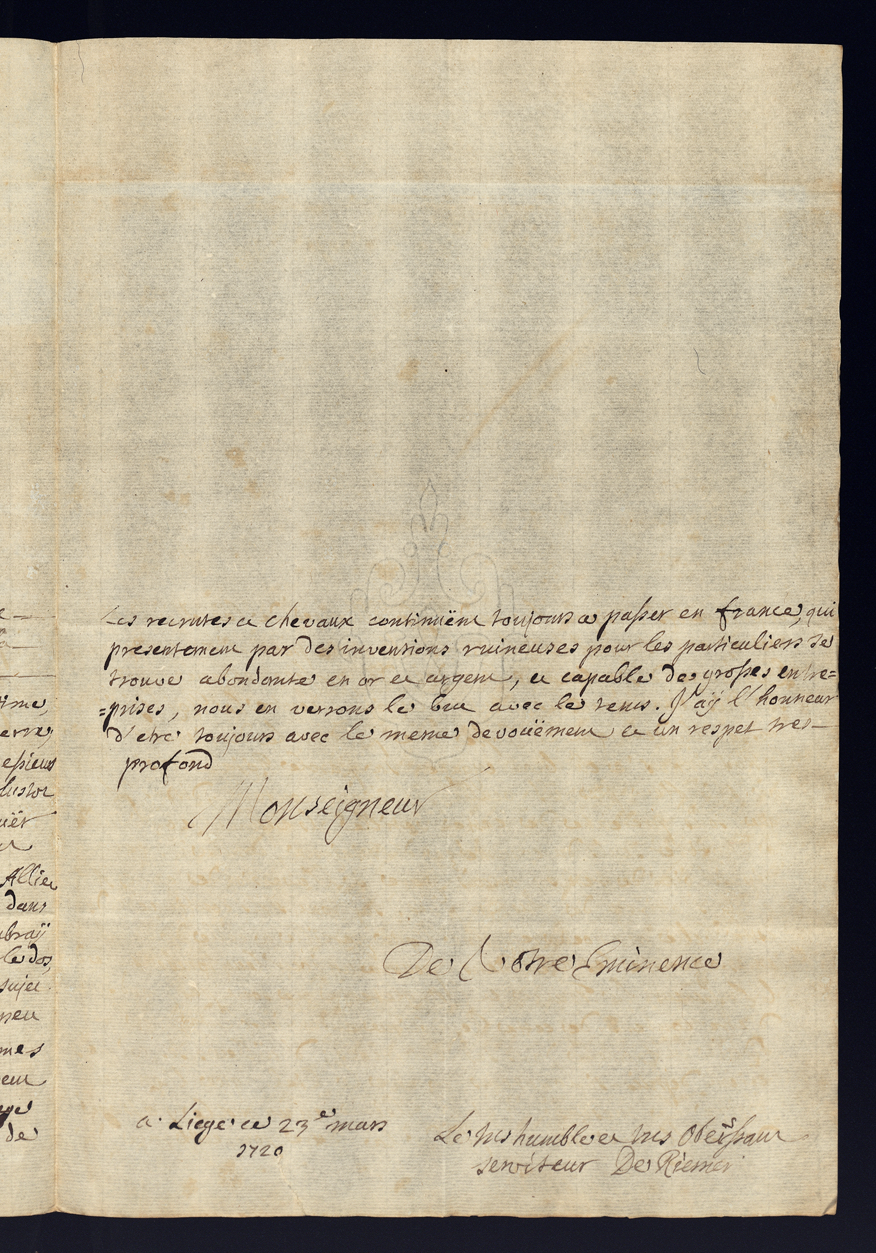 Les recrutes et chevaux continuënt toujours a passer en france, qui
presentement par des inventions ruineuses pour les particuliers se
trouve abondante en or et argent, et capable de grosses entre=
=prises, nous en verrons le but avec le tems. J'aÿ l'honneur
d'etre toujours avec le meme devouëment et un respet tres-
profond
Monseigneur
De Votre Eminence
a Liege ce 23e mars
1720
Le tres humble et tres obeïssant
serviteur De